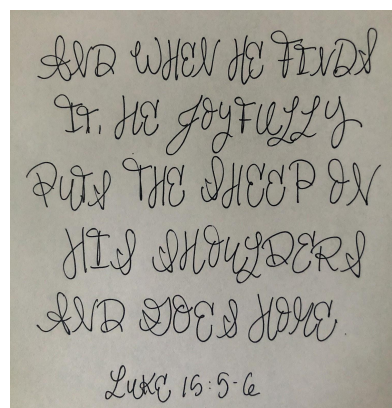 AND WHEN HE FINDS
IT, HE JOYFULLY
PUTS THE SHEEP ON
HIS SHOULDERS
AND GOES HOME.
LUKE 15:5-6